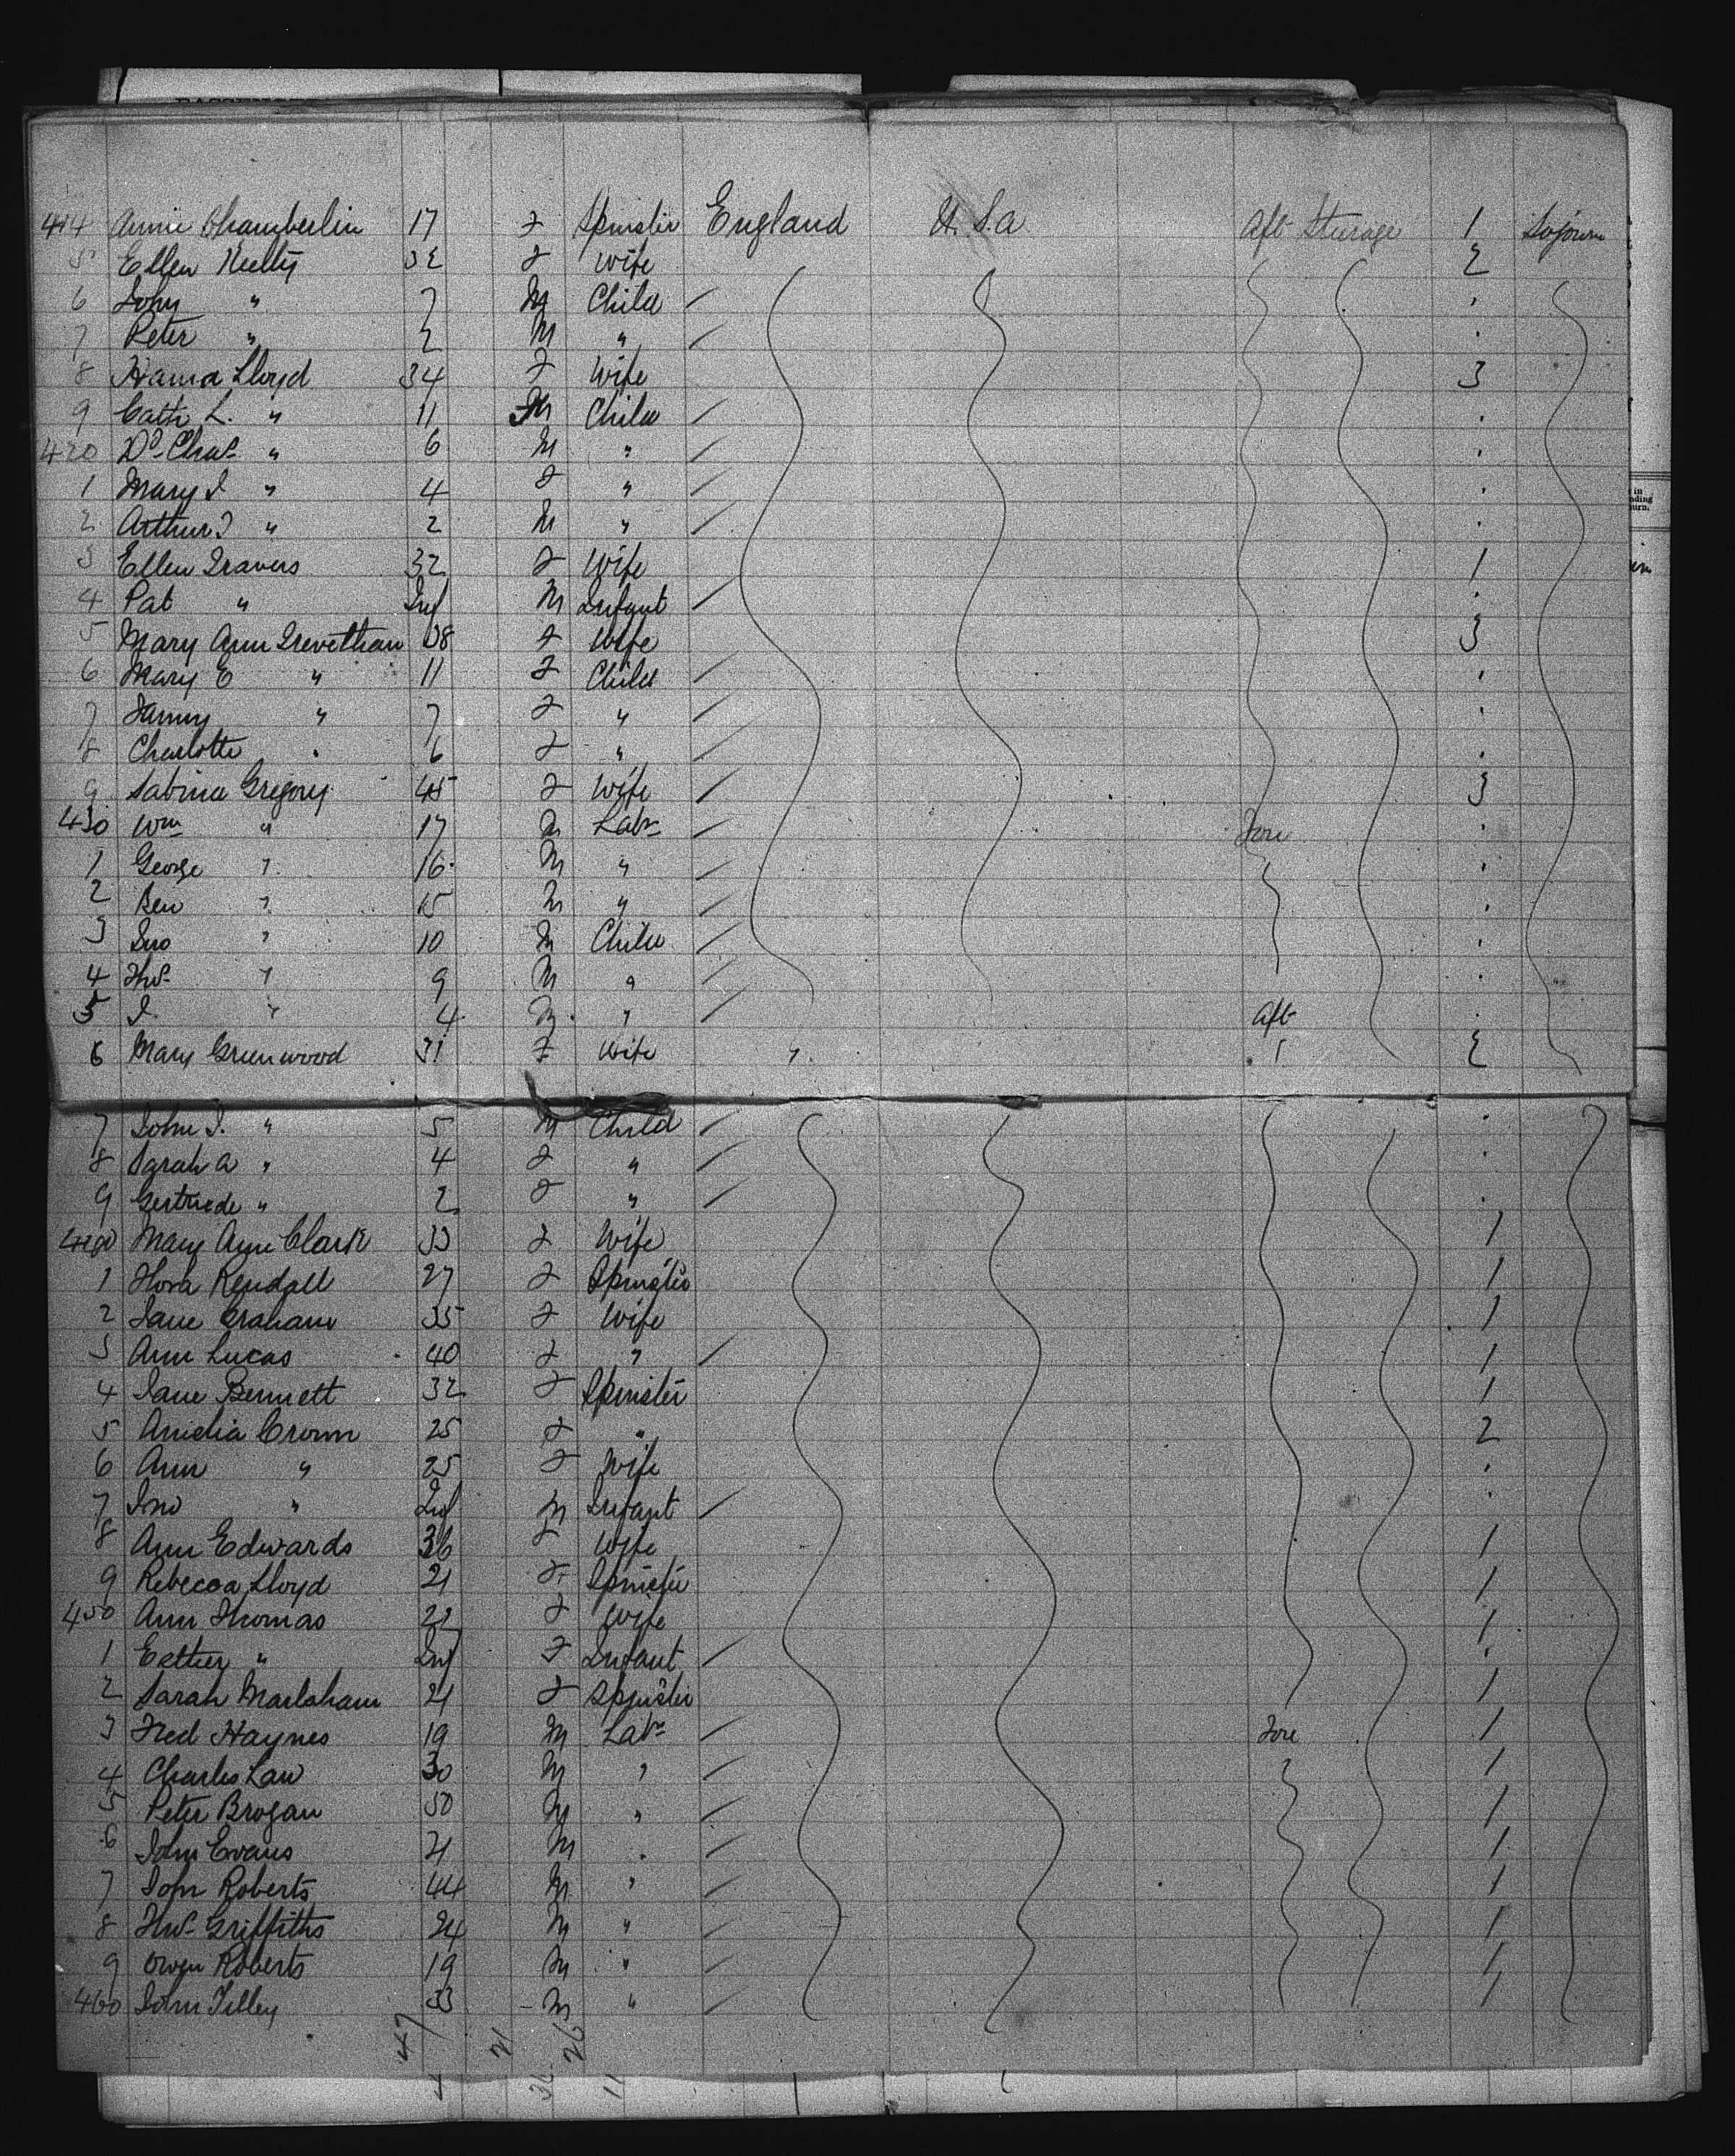 414 Annie Chamberlin 17 F Spinster England U.S.A Aft Steerage 1 Sojourn
5 Ellen Kielty 32 F Wife 2
6 John " 7 M Child /
7 Peter " 2 M " /
8 Lloyd 34 F Wife 3
9 Cath L. " 11 Child /
420 Dd Chas " 6 M " /
1 Mary J " 4 F " /
2 Arthur J " 2 M " /
3 Ellen Travers 32 F Wife 1
4 Pat " Inf M Infant /
5 Mary Ann Trevethan 38 F Wife 3
6 Mary E " 11 F Child /
7 Fanny " 7 F " /
8 Charlotte " 6 F " /
9 Sabina Gregory 45 F Wife / 3
430 Wm " 17 M Labr / Fore
1 George " 16 M " /
2 Ben " 15 M " /
3 Jno " 10 M Child /
4 Thos " 9 M " /
5 J. " 4 M " / Aft
6 Mary Greenwood 31 F Wife " 2
7 John J. " 5 M Child /
8 Sarah A " 4 F " /
9 Gertrude " 2 F " /
440 Mary Ann Clark 33 F Wife 1
1 Flora Kendall 27 F Spinster 1
2 Jane Graham 35 F Wife 1
3 Ann Lucas 40 F " / 1
4 Jane Bennett 32 F Spinster 1
5 Amelia Crown 25 F " 2
6 Ann " 25 F Wife
7 Jno " Inf M Infant /
8 Ann Edwards 36 F Wife 1
9 Rebecca Lloyd 21 F Spinster 1
450 Ann Thomas 22 F Wife 1
1 Esther " Inf F Infant /
2 Sarah 21 F Spinster 1
3 Fred Haynes 19 M Labr / Fore 1
4 Charles Law 30 M " / 1
5 Peter Brogan 50 M " / 1
6 John Evans 21 M " / 1
7 John Roberts 44 M " / 1
8 Thos Griffiths 24 M " / 1
9 Owen Roberts 19 M " / 1
460 John Tilley 33 M " / 1
47 21 26